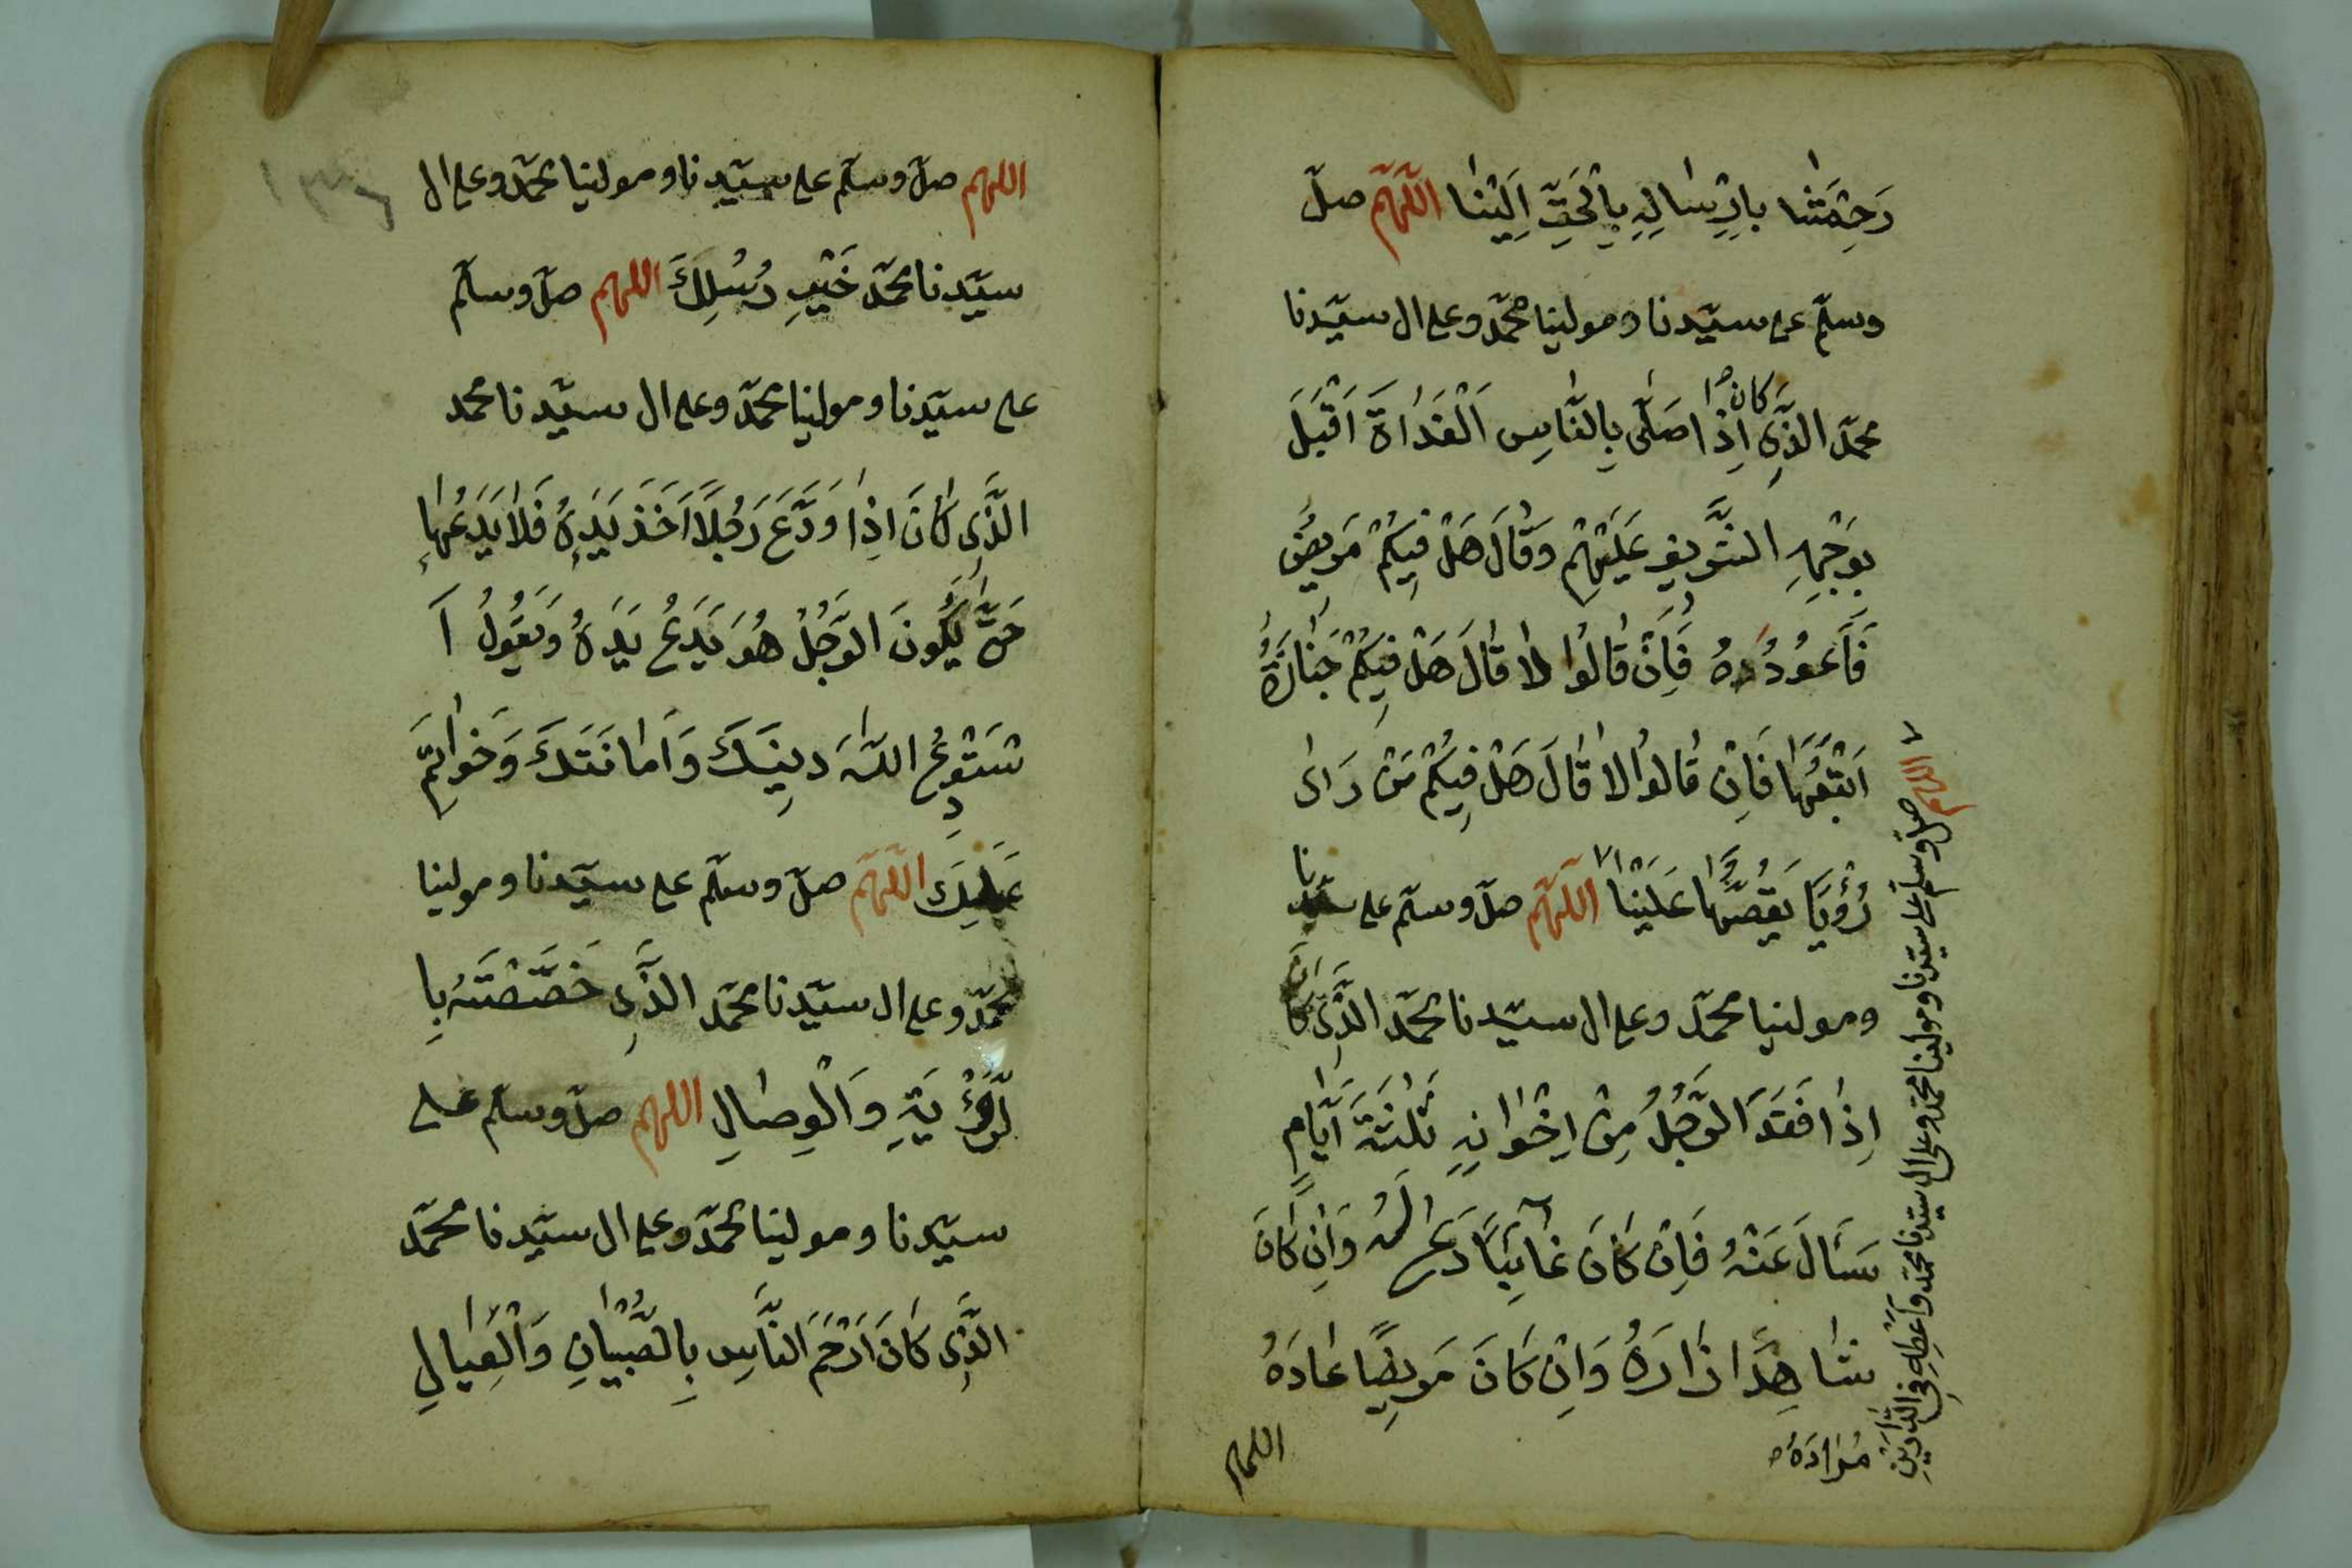 رَحِمْتَنَا بِاِرْسَالِهِ بِالْحَقِّ اِلَيْنَا اَللّٰهُمَّ صلّ
وسلّم على سيّدنا ومولينا محمّد وعلى ال سيّدنا
محمّد الَّذِى كَانَ اِذَا صَلَّى بِالنَّاسِ اَلْغَدَاةَ اَقْبَلَ
بِوَجْهِهِ الشَّرِيفِ عَلَيْهِمْ وَقَالَ هَلْ فِيكُمْ مَرِيضٌ
فَاَعُودُهُ فَاِنْ قَالُوا لَا قَالَ هَلْ فِيكُمْ جَنَازَةٌ
اَتْبَعُهَا فَاِنْ قَالُوا لَا قَالَ هَلْ فِيكُمْ مَنْ رَاىٰ
رُؤْيَا يَقُصُّهَا عَلَيْنَا اَللّٰهُمَّ صلّ وسلّم على سيّدنا
ومولينا محمّد وعلى ال سيّدنا محمّد الَّذِى كَانَ
اِذَا فَقَدَ الرَّجُلُ مِنْ اِخْوَانِهِ ثَلٰثَةَ اَيَّامٍ
سَئَالَ عَنْهُ فَاِنْ كَانَ غَائِبًا دَعَا لَهُ وَاِنْ كَانَ
شَاهِدًا زَارَهُ وَاِنْ كَانَ مَرِيضًا عَادَهُ
اللهم
اللهم صلّ وسلّم على سيّدنا ومولينا محمّد وعلى ال سيّدنا محمّد وَاَعْطِهِ فِى الدَّارَيْنِ
مُرَادَهُ
١٣٦
اللهم صلّ وسلّم على سيّدنا ومولينا محمّد وعلى ال
سيّدنا محمّد خَيْرِ رُسُلِكَ اللهم صلّ وسلّم
على سيّدنا ومولينا محمّد وعلى ال سيّدنا محمد
الَّذِى كَانَ اِذَا وَدَّعَ رَجُلًا اَخَذَ يَدِهِ فَلَا يَدَعُهَا
حَتّٰى يَكُونَ الرَّجُلُ هُوَ يَدَعُ يَدَهُ وَيَقُولُ اَ
سْتَوْدِعُ اللّٰهَ دِينَكَ وَاَمَانَتَكَ وَخَوَاتِمَ
عَمَلِكَ اَللّٰهُمَّ صلّ وسلّم على سيّدنا ومولينا
محمّد وعلى ال سيّدنا محمّد الَّذِى خَصَّصْتَهُ بِا
لرُّؤْيَةِ وَالْوِصَالِ اللهم صلّ وسلّم على
سيّدنا ومولينا محمّد وعلى ال سيّدنا محمّد
الَّذِى كَانَ اَرْحَمَ النَّاسِ بِالصِّبْيَانِ وَالْعِيَالِ